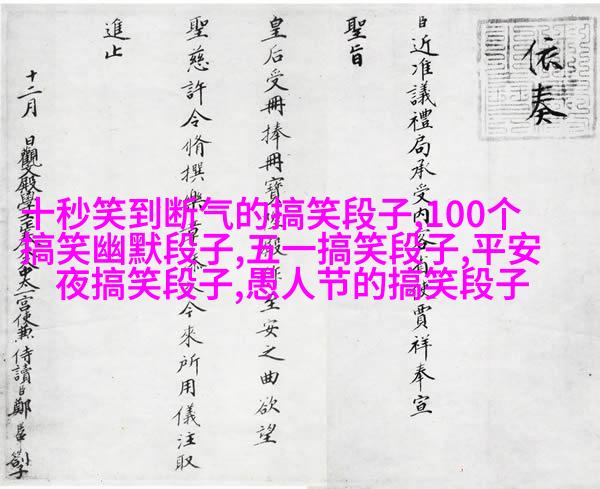 依奏
臣近准議禮局承受內客省使賈祥奉宣
聖旨
皇后受冊捧冊寶殿安之曲欲望
聖慈許令脩撰樂章添入今來所用儀注取
進止
十二月 日觀文殿學士太一宮使兼侍讀臣鄭
十秒笑到断气的搞笑段子,100个
搞笑幽默段子,五一搞笑段子,平安
夜搞笑段子,愚人节的搞笑段子